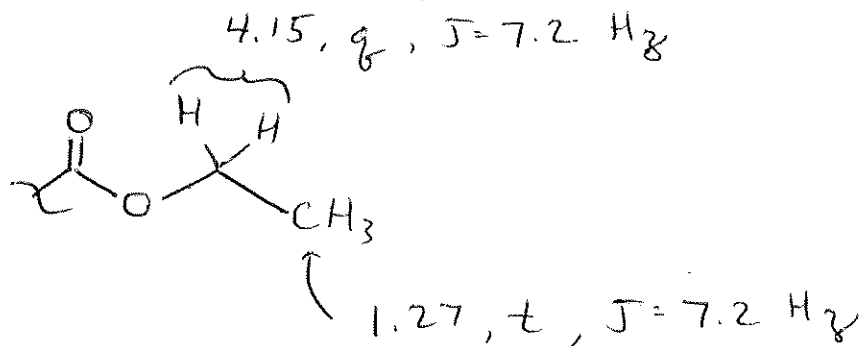 4.15, q, J = 7.2 Hz
H
H
O
O
CH₃
1.27, t, J = 7.2 Hz